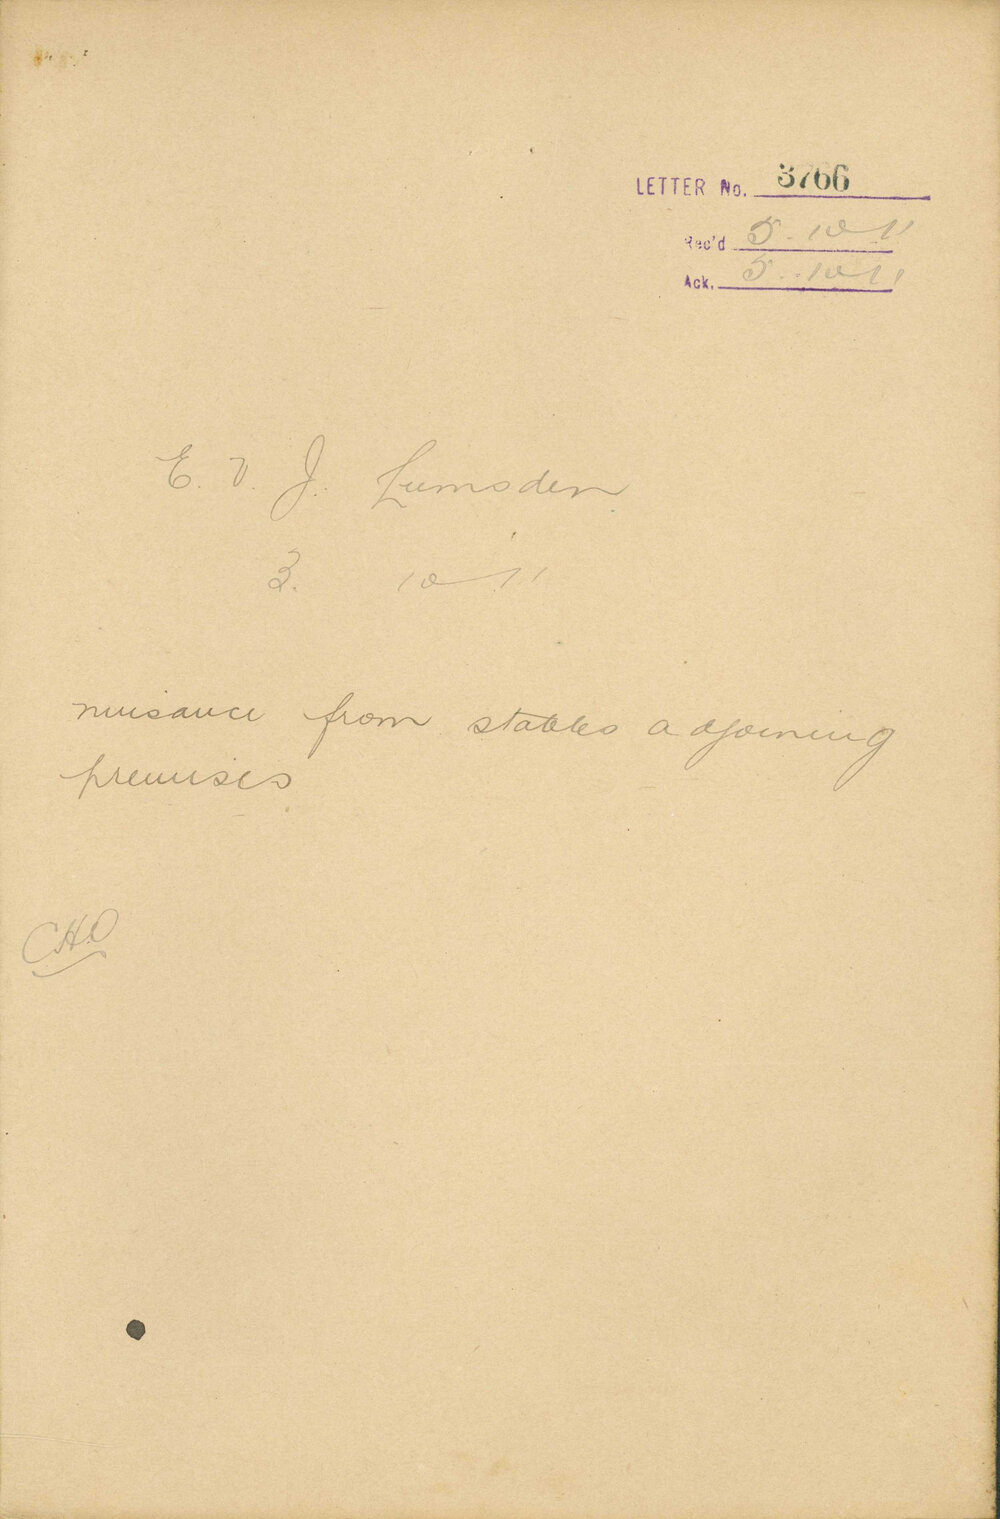 LETTER No. 3766
Rec'd 5-10-11
Ack. 5-10-11
E. V. J. Lumsden
3. 10-11
nuisance from stables adjoining
premises
C.H.O